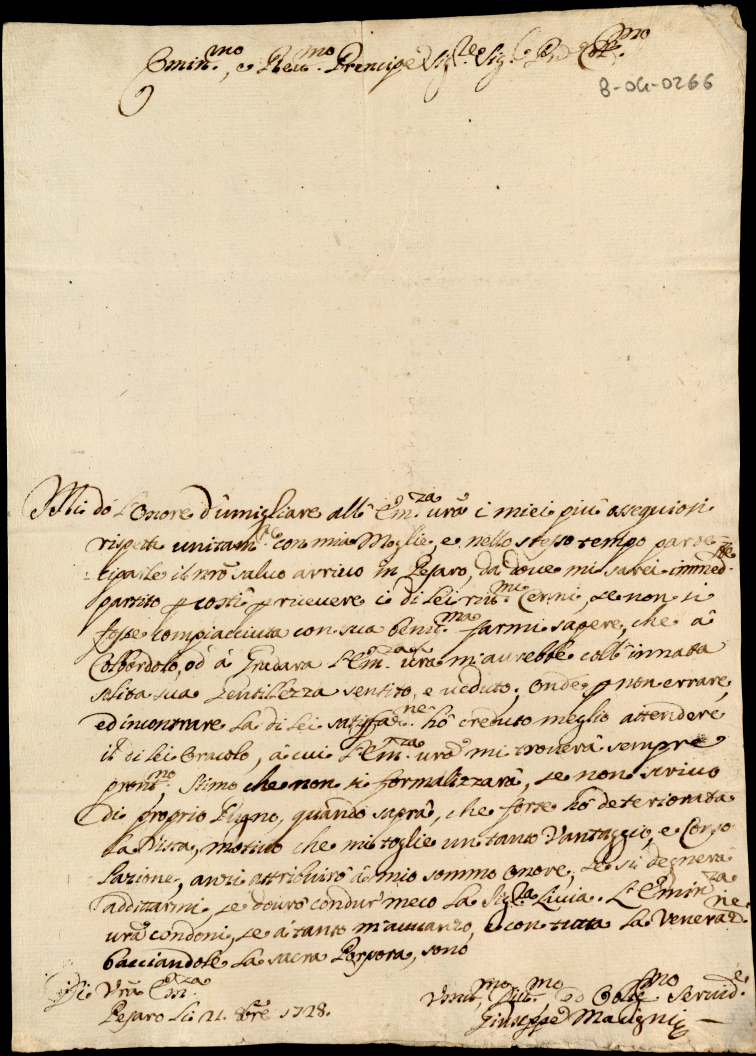 Emin.mo, e Rev.mo Prencipe Sig.re Sig.
8-04-0266
Mi dò l'onore d'umigliare all'Em.za vrã i miei più assequiosi
rispetti unitam.te con mia Moglie, e nello stesso tempo parte=
=ciparle il nrõ salvo arrivo in Pesaro, da dove mi sarei immed.te
partito p costì p ricevere i di lei riv.mi Cenni, se non si
fosse compiacciuta con sua benig.ma farmi sapere, che à
Colbordolo, od à Gradara l'Em.za vrã m'avrebbe coll'innata
solita sua gentilezza sentito, e veduto; onde p non errare,
ed incontrare la di lei satisfad.ne hò creduto meglio attendere
il di lei oracolo, à cui l'Em.za vrã mi troverà sempre
pront.mo Stimo che non si formalizzarà, se non scrivo
di proprio Pugno, quando saprà, che forte hò deteriorata
la Vista, motivo che mi toglie un tanto Vantaggio, e Conso
lazione, anzi attribuirò à mio sommo onore, se si degnerà
additarmi, se dovrò condur meco la Sig.ra Livia. L'Emin.za
vrã condoni, se à tanto m'avvanzo, e con tutta la Veneraz.ne
bacciandole la sacra Porpora, sono
Di Vrã Em.za
Pesaro li 21. 8bre 1728.
Vmil.mo, ed Obblig.mo Servid.e
Giuseppe